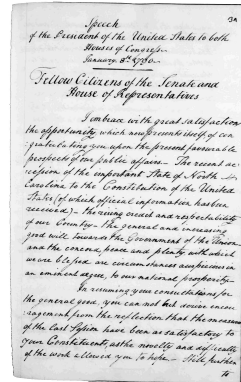 3a
Speech
of the President of the United States to both
Houses of Congress
January 8th 1790
Fellow Citizens of the Senate and
House of Representatives
I embrace with great satisfaction
the opportunity which now presents itself, of con
gratulating you upon the present favourable
prospects of our public affairs — The recent ac
cession of the important State of North
Carolina to the Constitution of the United
States (of which official information has been
received) — the rising credit and respectability
of our Country — the general and increasing
good will towards the Government of the Union
and the concord, peace and plenty, with which
we are blessed, are circumstances auspicious in
an eminent degree, to our national prosperity.
In resuming your consultations for
the general good, you can not but derive encou
ragement from the reflection that the measures
of the last Session have been as satisfactory to
your Constituents, as the novelty and difficulty
of the work allowed you to hope — Still further
to